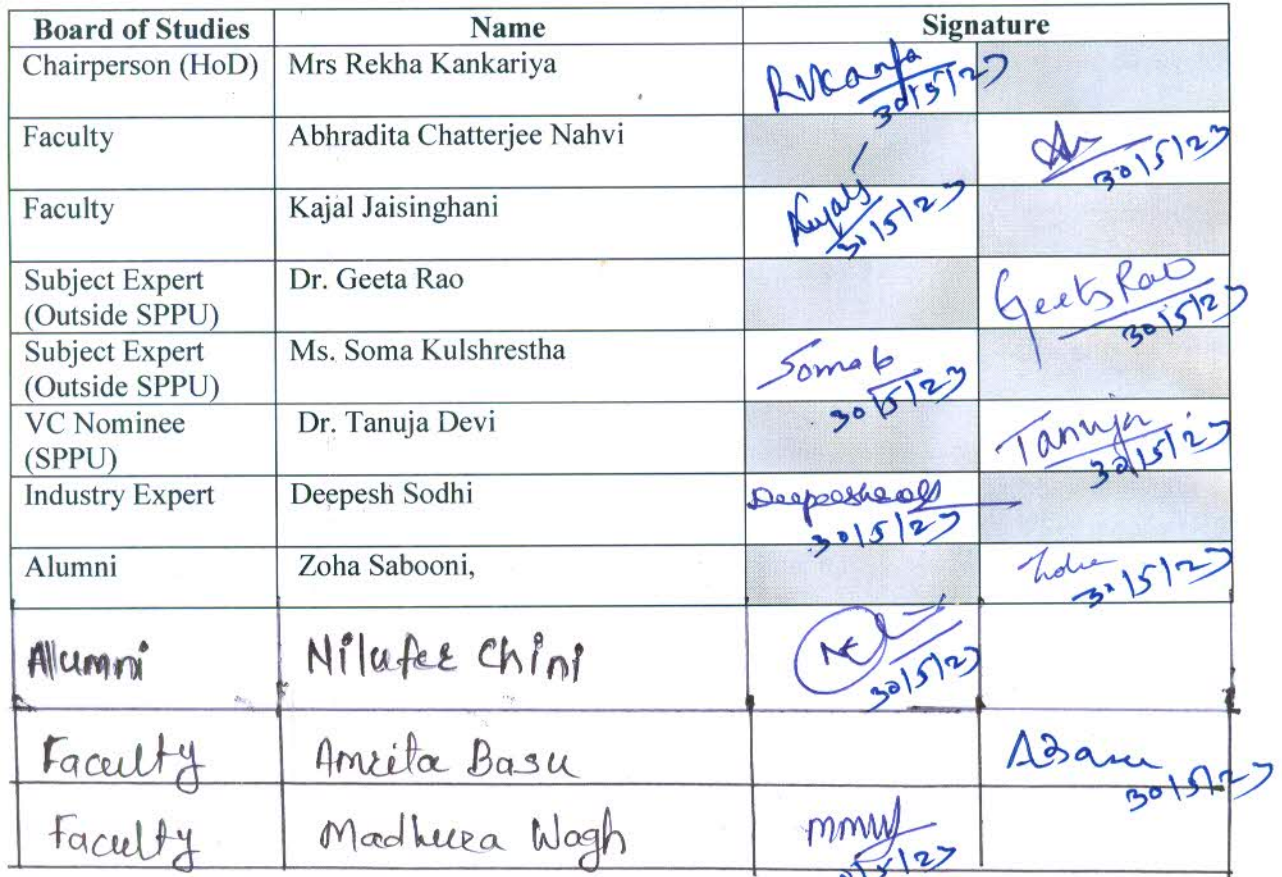 Board of Studies Name Signature
Chairperson (HoD) Mrs Rekha Kankariya
30/5/23
Faculty Abhradita Chatterjee Nahvi
30/5/23
Faculty Kajal Jaisinghani
30/5/23
Subject Expert
(Outside SPPU)
Dr. Geeta Rao
Geeta Rao
30/5/23
Subject Expert
(Outside SPPU)
Ms. Soma Kulshrestha
30/5/23
VC Nominee
(SPPU)
Dr. Tanuja Devi
Tanuja
30/5/23
Industry Expert Deepesh Sodhi
30/5/23
Alumni Zoha Sabooni,
Zoha
30/5/23
Allumni Nilufer Chini
30/5/23
Faculty Amrita Basu ABasu
30/5/23
Faculty Madhura Wagh